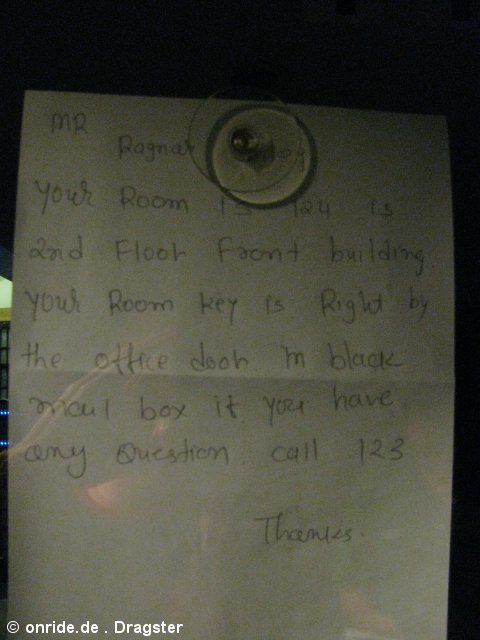 MR
Ragnar
Your Room is 124 is
2nd Floor Front building.
Your Room key is Right by
the office door. in black
mail box if you have
any Question call 123
Thanks.
© onride.de . Dragster